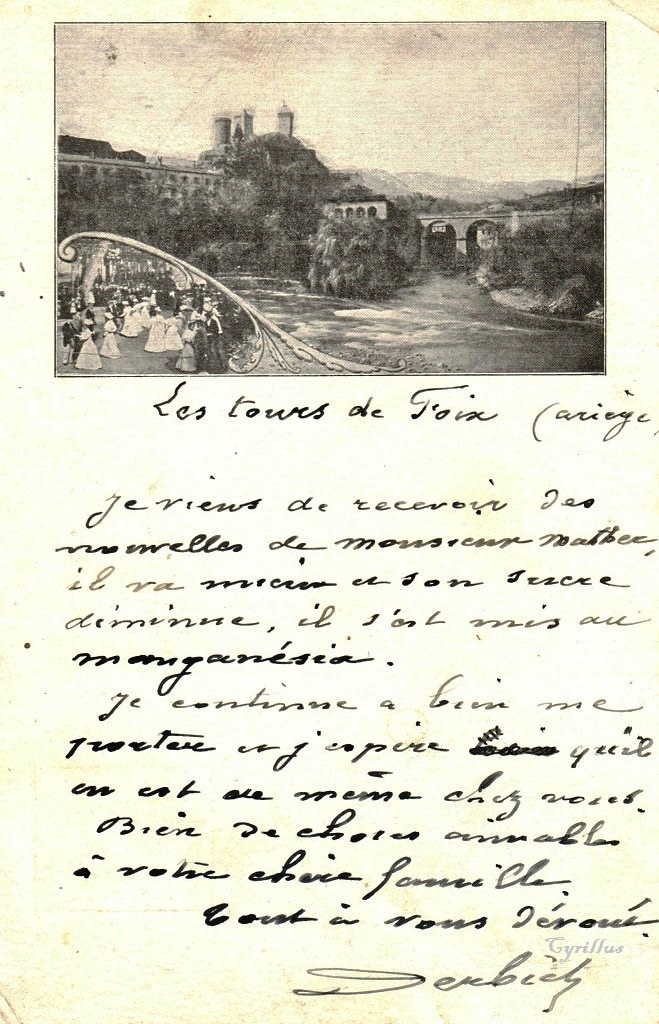 Les tours de Foix (ariège
Je viens de recevoir des
nouvelles de monsieur
il va mieux et son sucre
diminue, il s'est mis au
manganésia.
Je continue a bien me
porter et j'espère qu'il
en est de même chez vous.
Bien de choses aimables
à votre chère famille
tout à vous dévoué.
Cyrillus